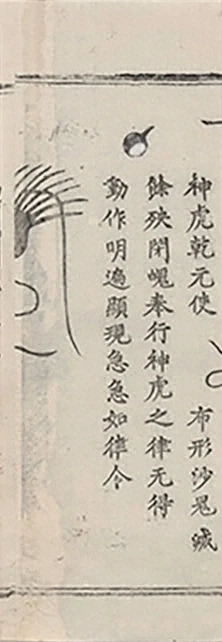 神虎乾元使 布形沙
餘殃奉行神虎之律无得
動作明遍顯現急急如律令